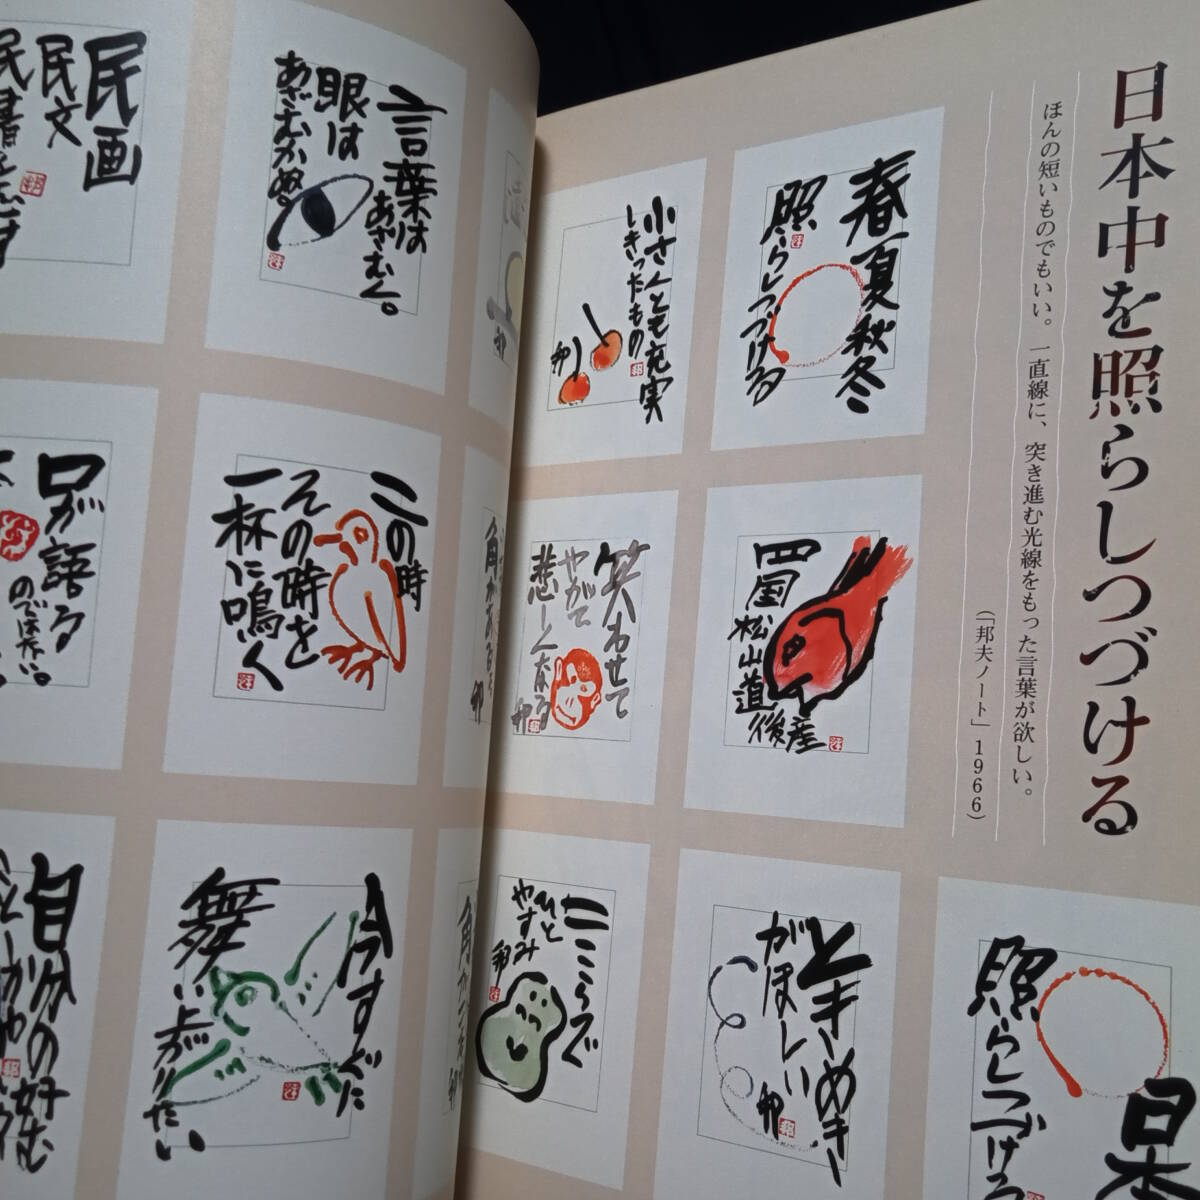 日本中を照らしつづける
ほんの短いものでもいい。一直線に、突き進む光線をもった言葉が欲しい。
（「邦夫ノート」1966）
春夏秋冬
照らしつづける
小さくとも充実
しきったもの
四国
松山道後産
笑わせて
やがて
悲しくなる
ときめき
がほしい
こころで
ひと
やすみ
照らしつづける
日本
言葉は
あざむく。
眼は
あざむかぬ
民画
民文
民書を志す
この時
その時を
一杯に鳴く
口が語る
のではない。
今すぐだ
舞い上がりたい
自分の好む